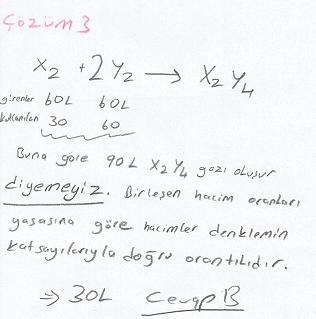 ÇÖZÜM 3
X₂ + 2Y₂ → X₂Y₄
girenler 60L 60L
kullanılan 30 60
Buna göre 90L X₂Y₄ gazı oluşur
diyemeyiz. Birleşen hacim oranları
yasasına göre hacimler denklemin
katsayılarıyla doğru orantılıdır.
⇒ 30L Cevap B